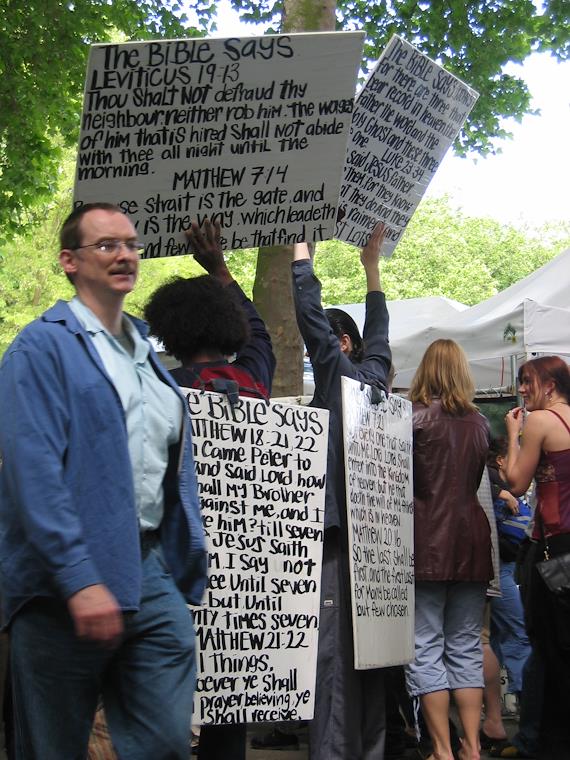 The BiBle Says
Leviticus 19-13
Thou Shalt Not defraud thy
neighbour, neither rob him. the wages
of him that is hired Shall Not abide
with thee all night until the
morning.
MATTHEW 714
strait is the gate, and
is the way, which leadeth
and few be that find it
The Bible Says
For there are three that
bear record in heaven
the word and the
Ghost and these three
one. Luke 23:34
said Jesus father
they for they know
they do and they
The BiBle Says
MATTHEW 18:21.22
Came Peter to
and said Lord how
Shall My Brother
against me, and I
him? till seven
Jesus Saith
I say not
Until Seven
but Until
times Seven
MATTHEW 21:22
all Things,
ye Shall
prayer believing, ye
Shall receive.
7:21
one that saith
Lord Lord, Shall
enter into the kingdom
of heaven but he that
doeth the will of My father
which is in heaven
MATTHEW 20:16
So the last Shall be
first, and the first Last
for Many be called
but few chosen